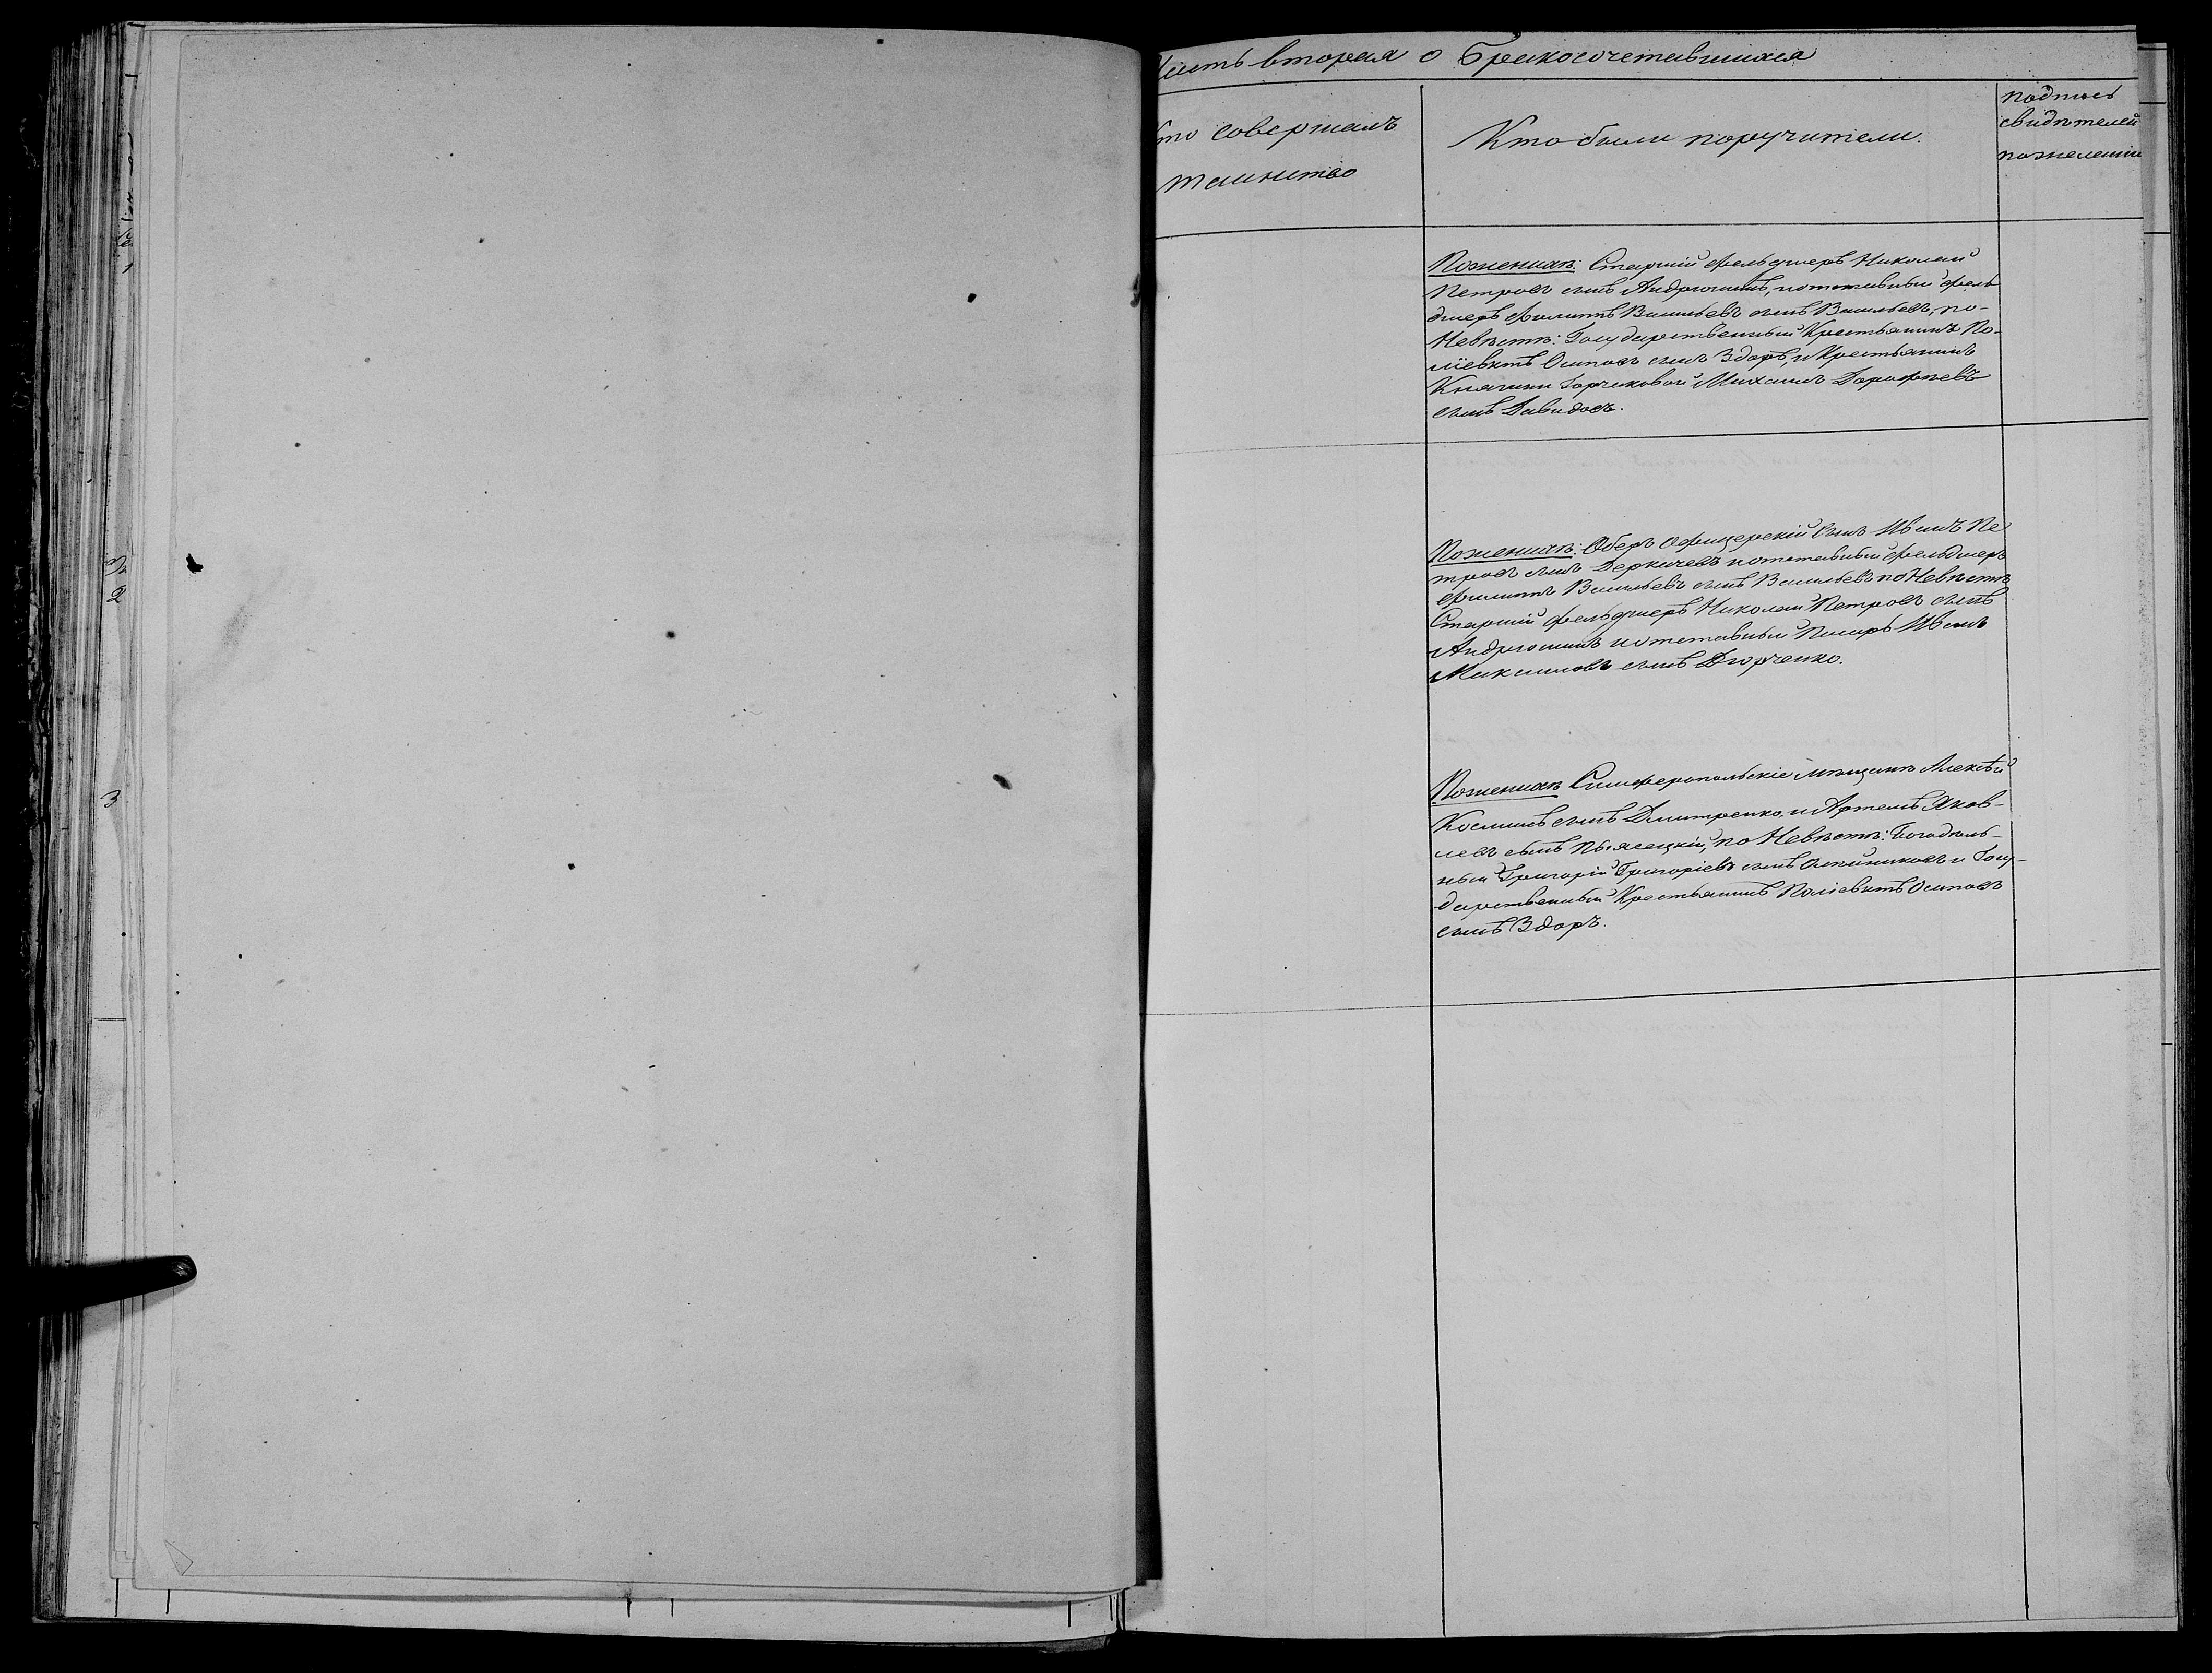 Часть вторая о Бракосочетавшихся
Кто совершалъ
таинство
Кто были поручители.
подпись
свидѣтелей
по желанію
По женихѣ: Старшій фельдшеръ Николай
Петровъ сынъ Андрюшинъ, и отставный фель-
дшеръ Филиппъ Васильевъ сынъ Васильевъ, по-
Невѣстѣ: Государственный Крестьянинъ По-
ліевктъ Осиповъ сынъ Здоръ, и Крестьянинъ
Княгини Горчаковой Михаилъ Дорофѣевъ
сынъ Давидовъ.
По женихѣ: Оберъ офицерскій сынъ Иванъ Пе
тровъ сынъ Деркачевъ и отставный фельдшеръ
Филиппъ Васильевъ сынъ Васильевъ по Невѣстѣ
Старшій фельдшеръ Николай Петровъ сынъ
Андрюшинъ и отставный Писарь Иванъ
Максимовъ сынъ Дюрченко.
По женихѣ Симферопольскіе мѣщане Алексѣй
Косминъ сынъ Дмитренко, и Артемъ Яков-
левъ сынъ Пясецкій, по Невѣстѣ: Богадѣль-
ный Григорій Григоріевъ сынъ Олейниковъ и Госу-
дарственный Крестьянинъ Поліевктъ Осиповъ
сынъ Здоръ.
2
3